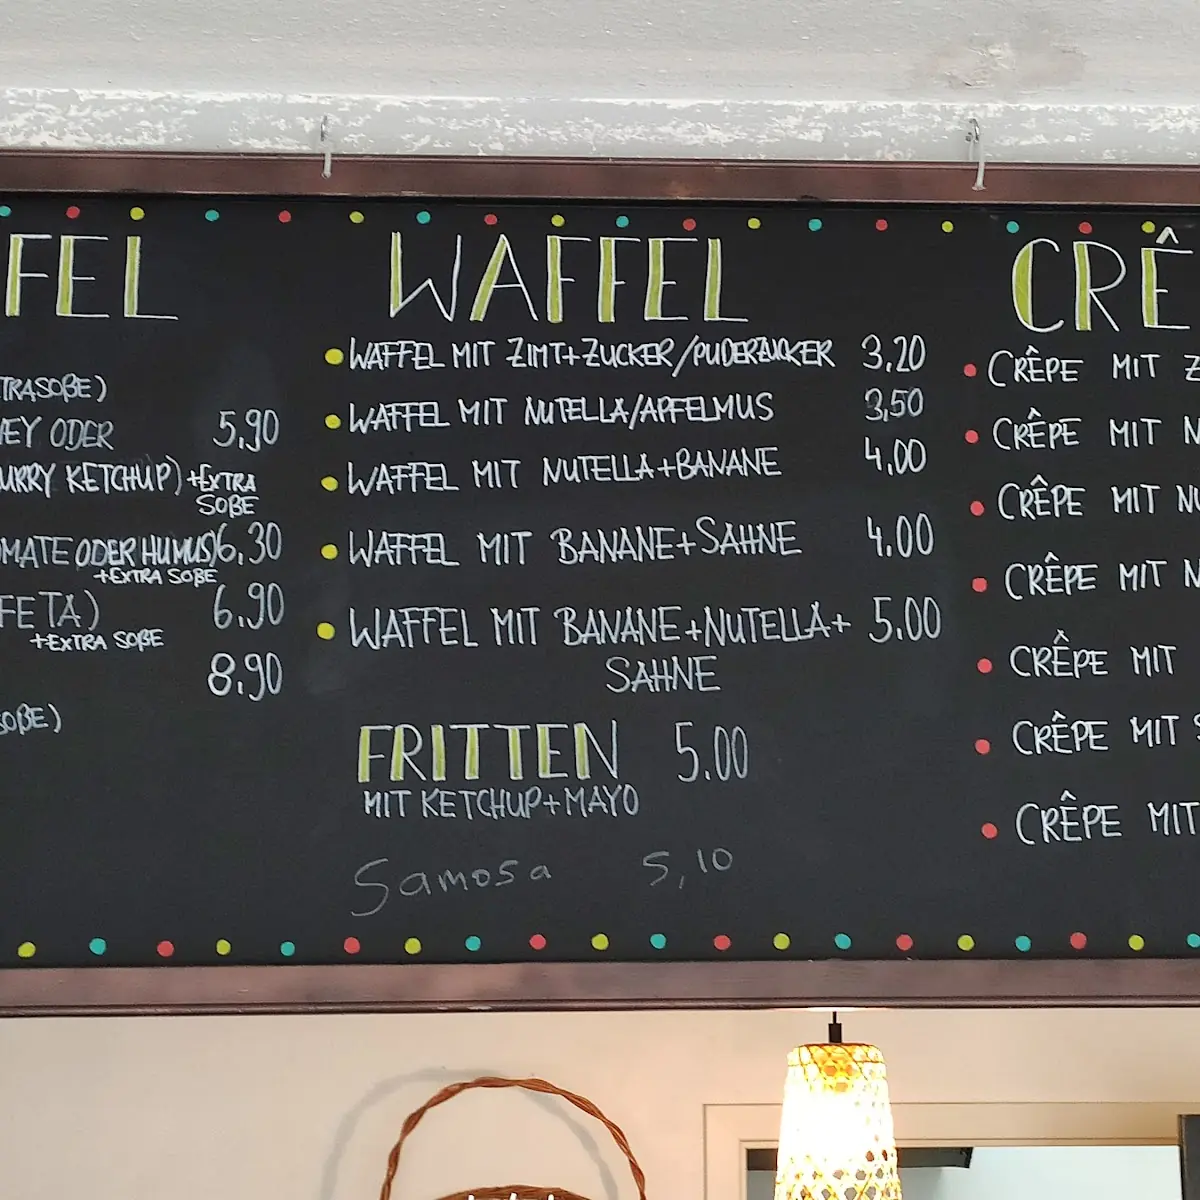 FEL
TRASOßE)
EY ODER 5,90
URRY KETCHUP) +EXTRA
SOßE
OMATE ODER HUMUS) 6,30
+EXTRA SOßE
FETA) 6.90
+EXTRA SOßE
8.90
SOßE)
WAFFEL
WAFFEL MIT ZIMT+ZUCKER/PUDERZUCKER 3,20
WAFFEL MIT NUTELLA/APFELMUS 3,50
WAFFEL MIT NUTELLA+BANANE 4,00
WAFFEL MIT BANANE+SAHNE 4.00
WAFFEL MIT BANANE+NUTELLA+ 5.00
SAHNE
FRITTEN 5.00
MIT KETCHUP+MAYO
Samosa 5,10
CRÊ
CRÊPE MIT Z
CRÊPE MIT N
CRÊPE MIT NU
CRÊPE MIT N
CRÊPE MIT
CRÈPE MIT S
CRÊPE MIT